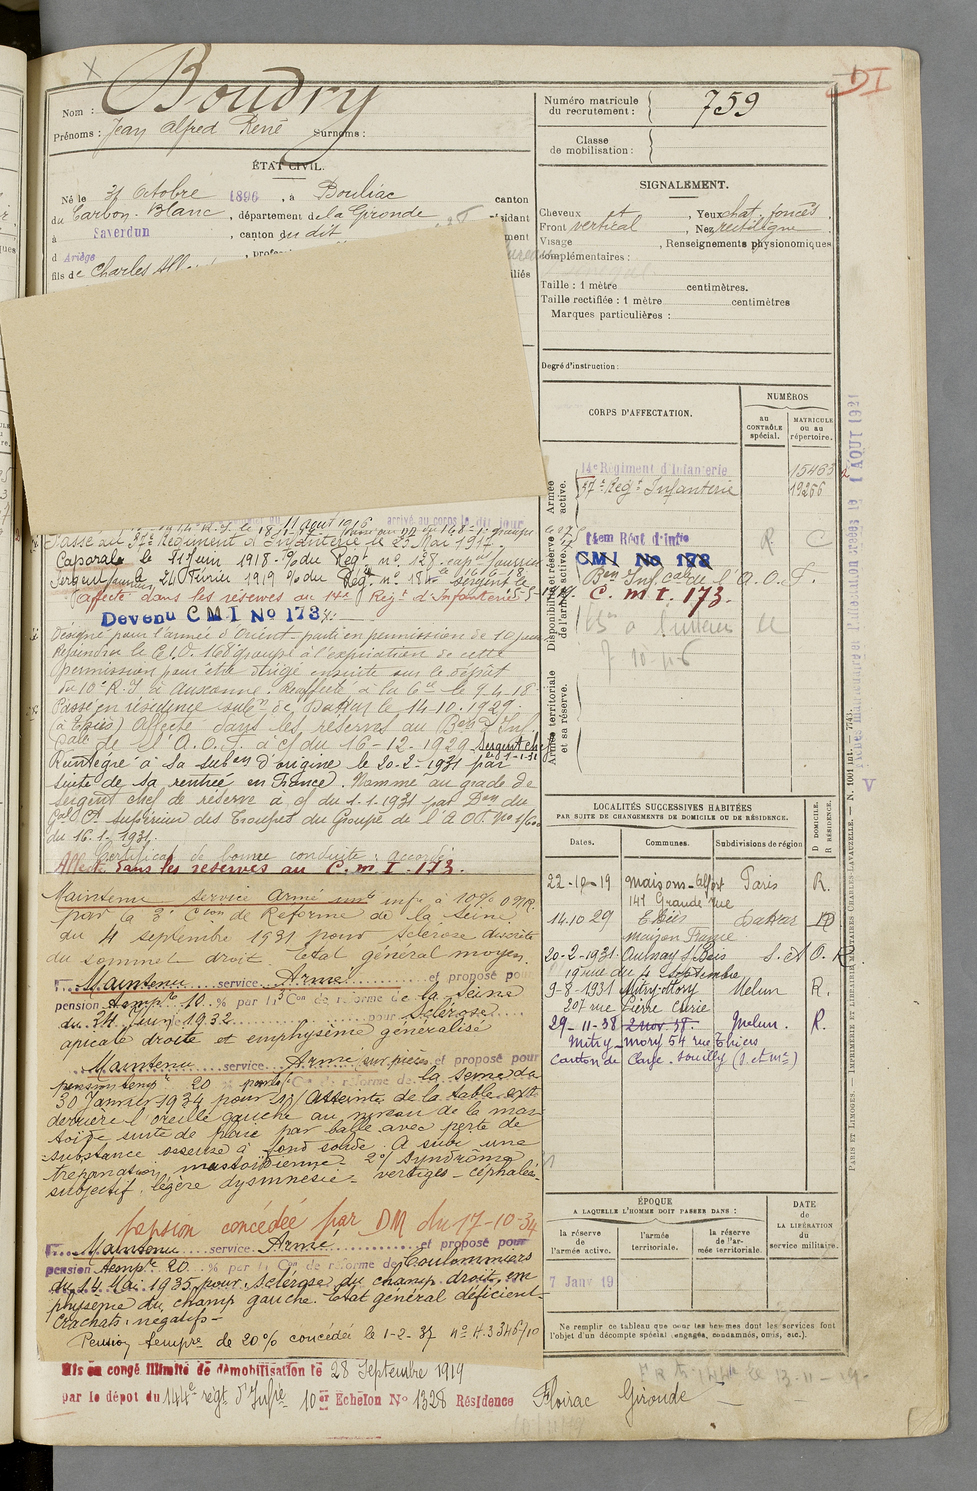 Nom : Boudry
Prénoms : Jean Alfred René Surnoms :
ÉTAT CIVIL.
Né le 31 Octobre 1896, à Bouliac canton
du Carbon-Blanc, département de la Gironde
à Saverdun, canton du dit
d Ariège
fils de Charles
Passé au 37e Régiment d'Infanterie le 23 Mai 1917
Caporal le 11 Juin 1918
Sergent 24 Février 1919
affecté dans les réserves au 14e Régt d'Infanterie
Devenu C M I No 173
Désigné pour l'armée d'Orient parti en permission de 10 jours
Rejoindra le C.I.D. 168 groupé à l'expiration de cette
permission pour être dirigé ensuite sur le dépôt
du 10e R.I. à Auxonne. Réaffecté à la 6e le 9-4-18
Passé en résidence subon de Dakar le 14.10.1929
(à Thiès) Affecté dans les réserves au Bon d'Inf.
Cale de l'A.O.F. à c/ du 16-12-1929 Sergent chef
Réintégré à sa subon d'origine le 20-2-1931 par
suite de sa rentrée en France. Nommé au grade de
sergent chef de réserve à c/ du 1.1.1931 par Don du
Gal Ct supérieur des Troupes du Groupe de l'A.O.F.
du 16.1.1931.
Certificat de bonne conduite : accordé
Affecté dans les réserves au C.M.I. 173.
Maintenu service armé inf à 10%
par la 3e Con de Réforme de la Seine
du 4 septembre 1931 pour sclérose discrète
du sommet droit Etat général moyen.
Maintenu service Armé et proposé pour
pension tempre 10 % par la 3e Con de réforme de la Seine
du 24 Juin 1932 pour Sclérose
apicale droite et emphysème généralisé
Maintenu service Armé sur pièces et proposé pour
pension tempre 20 % par la Con de réforme de la Seine du
30 Janvier 1934 pour 1º/ Atteinte de la table exte
derrière l'oreille gauche au niveau de la mas-
toïde suite de plaie par balle avec perte de
substance osseuse à fond solide. A subi une
trépanation mastoïdienne - 2º/ Syndrome
subjectif légère dysmnésie - vertiges - céphalée.
pension concédée par DM du 17-10-34
Maintenu service Armé et proposé pour
pension tempre 20 % par la Con de réforme de Coulommiers
du 14 Mai 1935 pour sclérose du champ droit, em-
physème du champ gauche. Etat général déficient-
Crachats négatifs-
Pension tempre de 20% concédée le 1-2-37
Mis en congé illimité de démobilisation le 28 Septembre 1919
par le dépôt du 144e régt d'Infie 10er Echelon No 1328 Résidence Floirac Gironde
Numéro matricule
du recrutement : 759
Classe
de mobilisation :
SIGNALEMENT.
Cheveux cht, Yeux chat. foncés,
Front vertical, Nez rectiligne,
Visage, Renseignements physionomiques
complémentaires :
Taille : 1 mètre centimètres.
Taille rectifiée : 1 mètre centimètres
Marques particulières :
Degré d'instruction :
CORPS D'AFFECTATION.
NUMÉROS
au
CONTRÔLE
spécial.
MATRICULE
ou au
répertoire.
Armée
active.
14e Régiment d'Infanterie 15463
37e Régt Infanterie 19256
Disponibilité et réserve
de l'armée active.
14em Régt d'Infie R C
CMI No 173
Bon Inf. Cale de l'A.O.F.
C.m.t. 173.
Armée territoriale
et sa réserve.
LOCALITÉS SUCCESSIVES HABITÉES
PAR SUITE DE CHANGEMENTS DE DOMICILE OU DE RÉSIDENCE.
Dates. Communes. Subdivisions de région
D DOMICILE.
R RÉSIDENCE.
22-10-19 Maisons-Alfort Paris R.
141 Grande Rue
14.10 29 Thiès Dakar
maison Frame
20-2-1931. Aulnay s/ Bois S. et O. R
19 rue du 4 Septembre
9-8-1931 Mitry-Mory Melun R.
207 rue Pierre Curie
29-11-38 2 nov 38. Melun. R.
Mitry-mory 54 rue Thiers
Canton de Claye-Souilly (S. et Me)
ÉPOQUE
A LAQUELLE L'HOMME DOIT PASSER DANS :
la réserve
de
l'armée active.
l'armée
territoriale.
la réserve
de l'ar-
mée territoriale.
DATE
de
LA LIBÉRATION
du
service militaire.
7 Janv 19
Ne remplir ce tableau que pour les hommes dont les services font
l'objet d'un décompte spécial (engagés, condamnés, omis, etc.).
DI
1 AOUT 1921
PARIS ET LIMOGES. — IMPRIMERIE ET LIBRAIRIE MILITAIRES CHARLES-LAVAUZELLE. — N. 1001 int. — 7745.
V